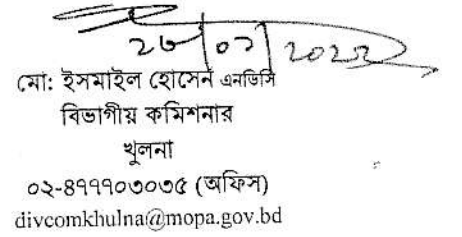 মো: ইসমাইল হোসেন এনডিসি
বিভাগীয় কমিশনার
খুলনা
০২-৪৭৭৭০৩০৩৫ (অফিস)
divcomkhulna@mopa.gov.bd